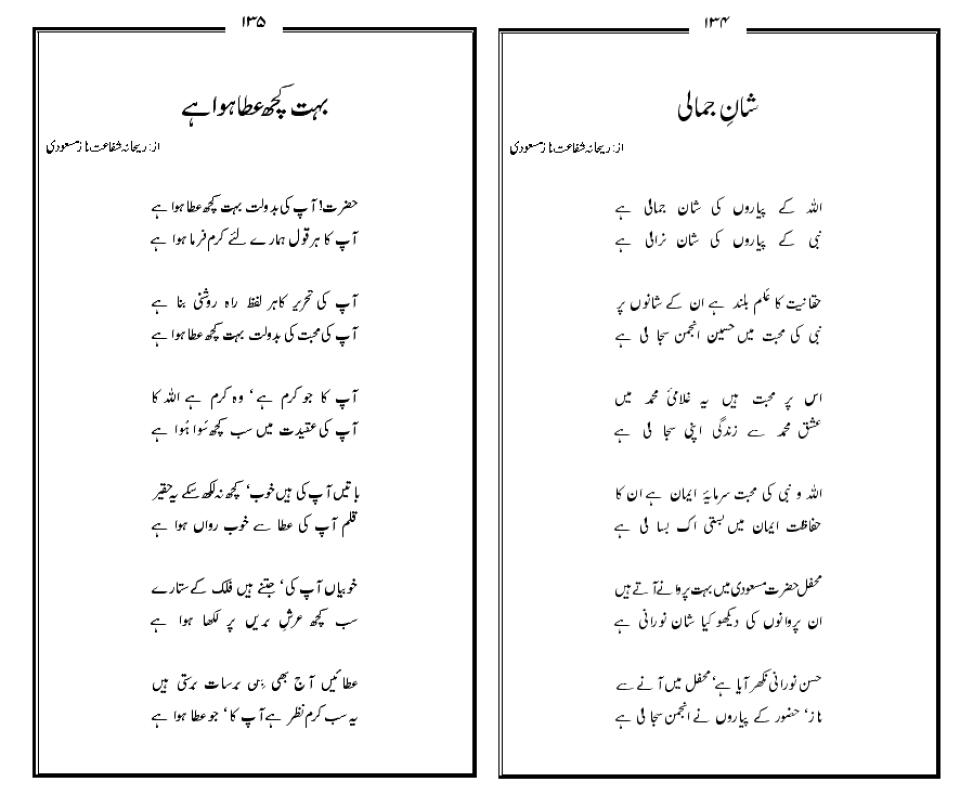 ۱۳۴
شانِ جمالی
از: ریحانہ شفاعت ناز مسعودی
اللہ کے پیاروں کی شان جمالی ہے
نبی کے پیاروں کی شان نرالی ہے
حقانیت کا عَلم بلند ہے ان کے شانوں پر
نبی کی محبت میں حسین انجمن سجا لی ہے
اس پر محبت ہیں یہ غلامیٔ محمد میں
عشق محمد سے زندگی اپنی سجا لی ہے
اللہ و نبی کی محبت سرمایۂ ایمان ہے ان کا
حفاظت ایمان میں بستی اک بسا لی ہے
محفل حضرت مسعودی میں بہت پروانے آتے ہیں
ان پروانوں کی دیکھو کیا شان نورانی ہے
حسن نورانی نکھر آیا ہے‘ محفل میں آنے سے
ناز‘ حضور کے پیاروں نے انجمن سجا لی ہے
۱۳۵
بہت کچھ عطا ہوا ہے
از: ریحانہ شفاعت ناز مسعودی
حضرت! آپ کی بدولت بہت کچھ عطا ہوا ہے
آپ کا ہر قول ہمارے لئے کرم فرما ہوا ہے
آپ کی تحریر کا ہر لفظ راہ روشنی بنا ہے
آپ کی محبت کی بدولت بہت کچھ عطا ہوا ہے
آپ کا جو کرم ہے‘ وہ کرم ہے اللہ کا
آپ کی عقیدت میں سب کچھ سُوا ہُوا ہے
باتیں آپ کی ہیں خوب‘ کچھ نہ لکھ سکے یہ حقیر
قلم آپ کی عطا سے خوب رواں ہوا ہے
خوبیاں آپ کی‘ جتنے ہیں فلک کے ستارے
سب کچھ عرشِ بریں پر لکھا ہوا ہے
عطائیں آج بھی بن برسات برستی ہیں
یہ سب کرم نظر ہے آپ کا‘ جو عطا ہوا ہے